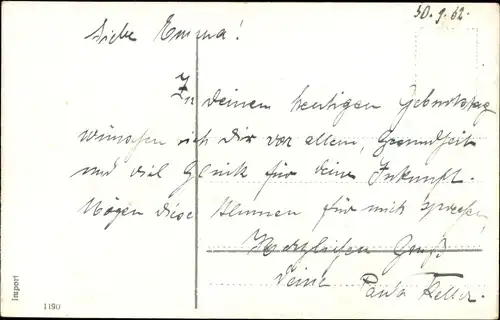 30.9.62.
Liebe Emma!
Zu Deinem heutigen Geburtstag
wünschen ich Dir vor allem, Gesundheit
und viel Glück für Deine Zukunft.
Mögen diese Blumen für mich sprechen,
Herzlichen Gruß
Deine Paula Keller.
Import
1190